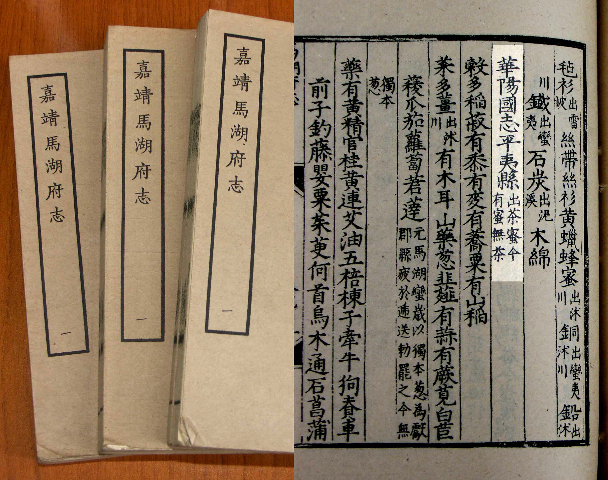 嘉靖馬湖府志
一
嘉靖馬湖府志
一
嘉靖馬湖府志
一
毡衫出雪坡絲帶絲衫黃蠟蜂蜜出沐川銅出蠻夷鉛出
川鐵出蠻夷石炭出泥溪木綿
華陽國志平夷縣出茶蜜今有蜜無茶
穀多稻菽有黍有麥有蕎粟有山稻
菜多薑出沐川有木耳山藥葱韭薤有蒜有蕨莧白苣
薐瓜茄蘿蔔莙薘元馬湖蠻歲以獨本葱為獻郡縣疲於遞送勅罷之今無獨本葱
藥有黃精官桂黃連艾油五棓楝子牽牛狗脊車
前子釣藤罌粟茱萸何首烏木通石菖蒲